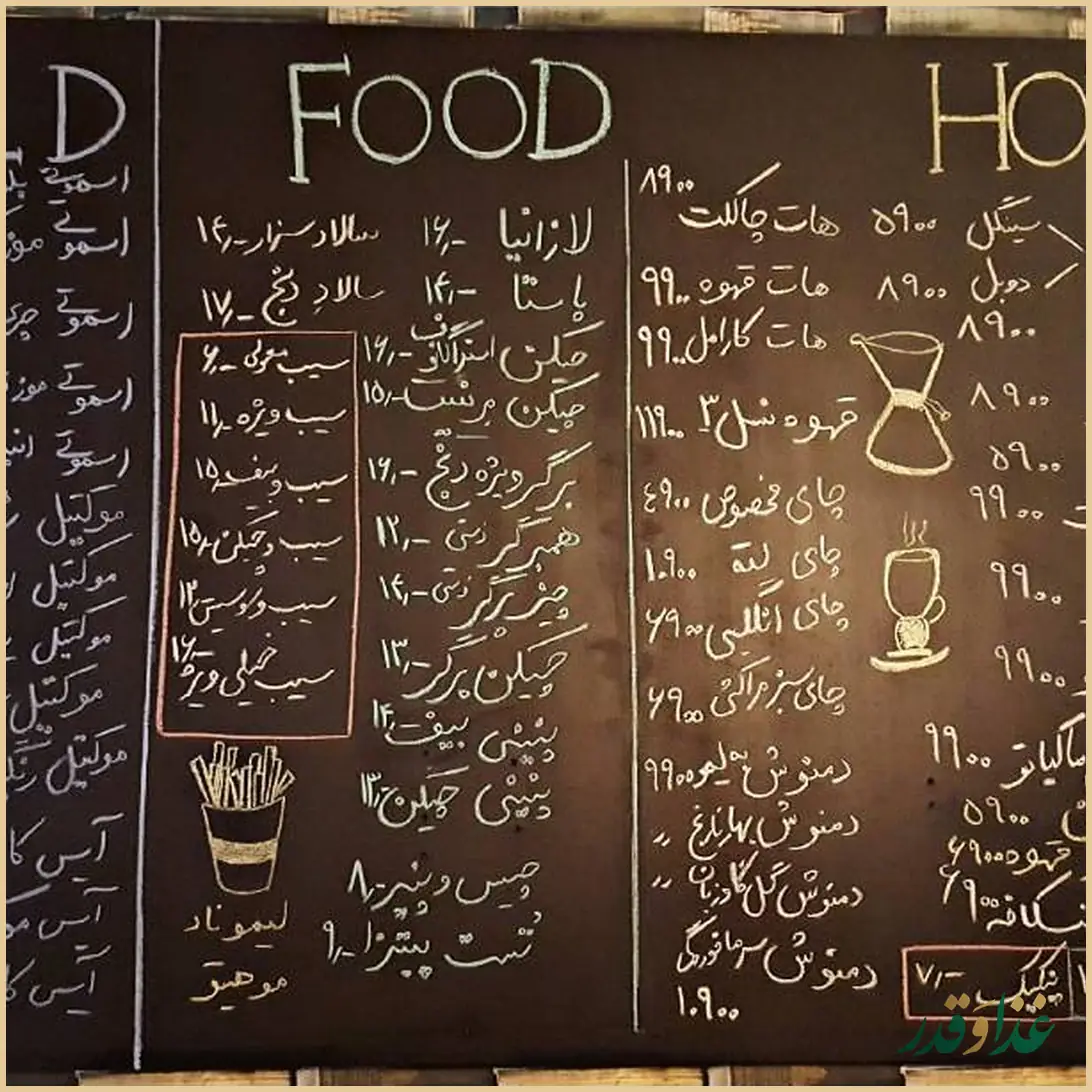 HO
سینگل ۵۹۰۰
دوبل ۸۹۰۰
۸۹۰۰
۸۹۰۰
۵۹۰۰
۹۹۰۰
۹۹۰۰
۹۹۰۰
ماکیاتو ۹۹۰۰
۵۹۰۰
قهوه ۶۹۰۰
۶۹۰۰
پنکیک ۷٫-
هات چاکلت ۸۹۰۰
هات قهوه ۹۹۰۰
هات کارامل ۹۹۰۰
قهوه نسل ۳ ۱۱۹۰۰
چای مخصوص ۴۹۰۰
چای لته ۱۰۹۰۰
چای انگلیسی ۶۹۰۰
چای سبز مراکشی ۶۹۰۰
دمنوش به لیمو ۹۹۰۰
دمنوش بهار نارنج ″
دمنوش گل گاوزبان ″
دمنوش سرماخوردگی
۱۰۹۰۰
FOOD
لازانیا ۱۶٫-
پاستا ۱۴٫-
چیکن استراگانف ۱۶٫-
چیکن برست ۱۵٫-
برگر ویژه دنج ۱۶٫-
همبرگر دستی ۱۲٫-
چیزبرگر دستی ۱۴٫-
چیکن برگر ۱۳٫-
پنینی بیف ۱۴٫
پنینی چیکن ۱۳٫
چیپس و پنیر ۸٫-
تست پیتزا ۹٫-
سالاد سزار ۱۴٫-
سالاد دنج ۱۷٫-
سیب معمولی ۶٫-
سیب ویژه ۱۱٫-
سیب و بیف ۱۵٫-
سیب و چیکن ۱۵٫-
سیب و سوسیس ۱۳
سیب خیلی ویژه ۱۶٫-
لیموناد
موهیتو
D
اسموتی
اسموتی
اسموتی
اسموتی موز
اسموتی
موکتیل
موکتیل
موکتیل
موکتیل
موکتیل
آیس
آیس
آیس
غذا و قدر